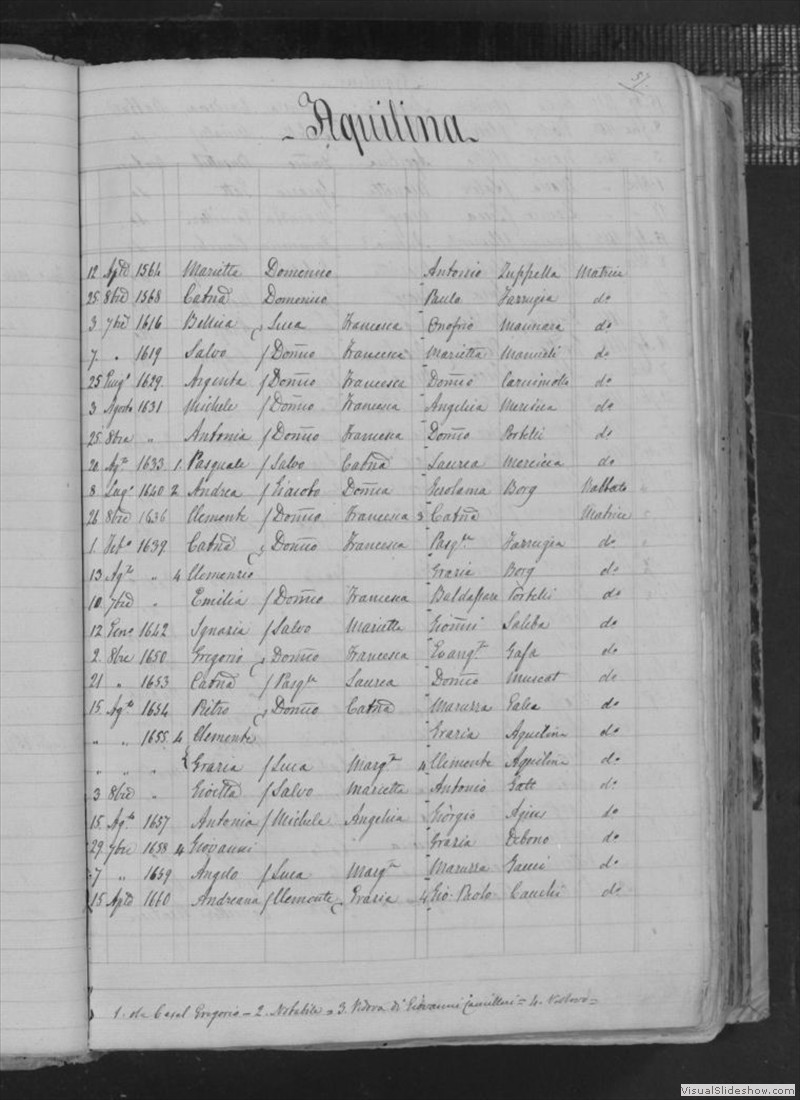 57
Aquilina
12 Aple 1564 Marietta Domenico Antonio Zuppella Matrice
25 8bre 1568 Catnã Domenico Paulo Farrugia do
3 7bre 1616 Bettina f Luca Francesca Onofrio Mannara do
7 „ 1619 Salvo f Domco Francesca Marietta do
25 1629 Argenta f Domco Francesca Domco do
3 Agosto 1631 Michele f Domco Francesca Angelica do
25 8bre „ Antonia f Domco Francesca Domco Portelli do
20 1633 1 Pasquale f Salvo Catnã Laurea do
8 Lugo 1640 2 Andrea f Giacobo Domca Gerolama Borg
26 8bre 1636 Clemente f Domco Francesca 3 Catnã Matrice
1 1639 Catnã f Domco Francesca Pasqle Farrugia do
13 „ 4 Clemenzio Grazia Borg do
10 7bre „ Emilia f Domco Francesca Baldassare Portelli do
12 Geno 1642 Ignazia f Salvo Marietta Gionni Saliba do
2 8bre 1650 Gregorio f Domco Francesca Evangta Gafa do
21 „ 1653 Catnã f Pasqle Laurea Domco Muscat do
15 Agto 1654 Pietro f Domco Catnã Maruzza Galea do
„ „ 1655 4 Clemente Grazia Aquilina do
„ „ „ Grazia f Luca Margta 4 Clemente Aquilina do
3 8bre „ Gioetta f Salvo Marietta Antonio Gatt do
15 Agto 1657 Antonia f Michele Angelica Giorgio Agius do
29 7bre 1658 4 Giovanni Grazia Debono do
7 „ 1659 Angelo f Luca Margta Maruzza Gauci do
15 Aple 1660 Andreana f Clemente Grazia 4 Gio Paolo Cauchi do
1. da Casal Gregorio = 2. Notabile = 3. Vidova di Giovanni Camilleri = 4. Vidovo =
VisualSlideshow.com